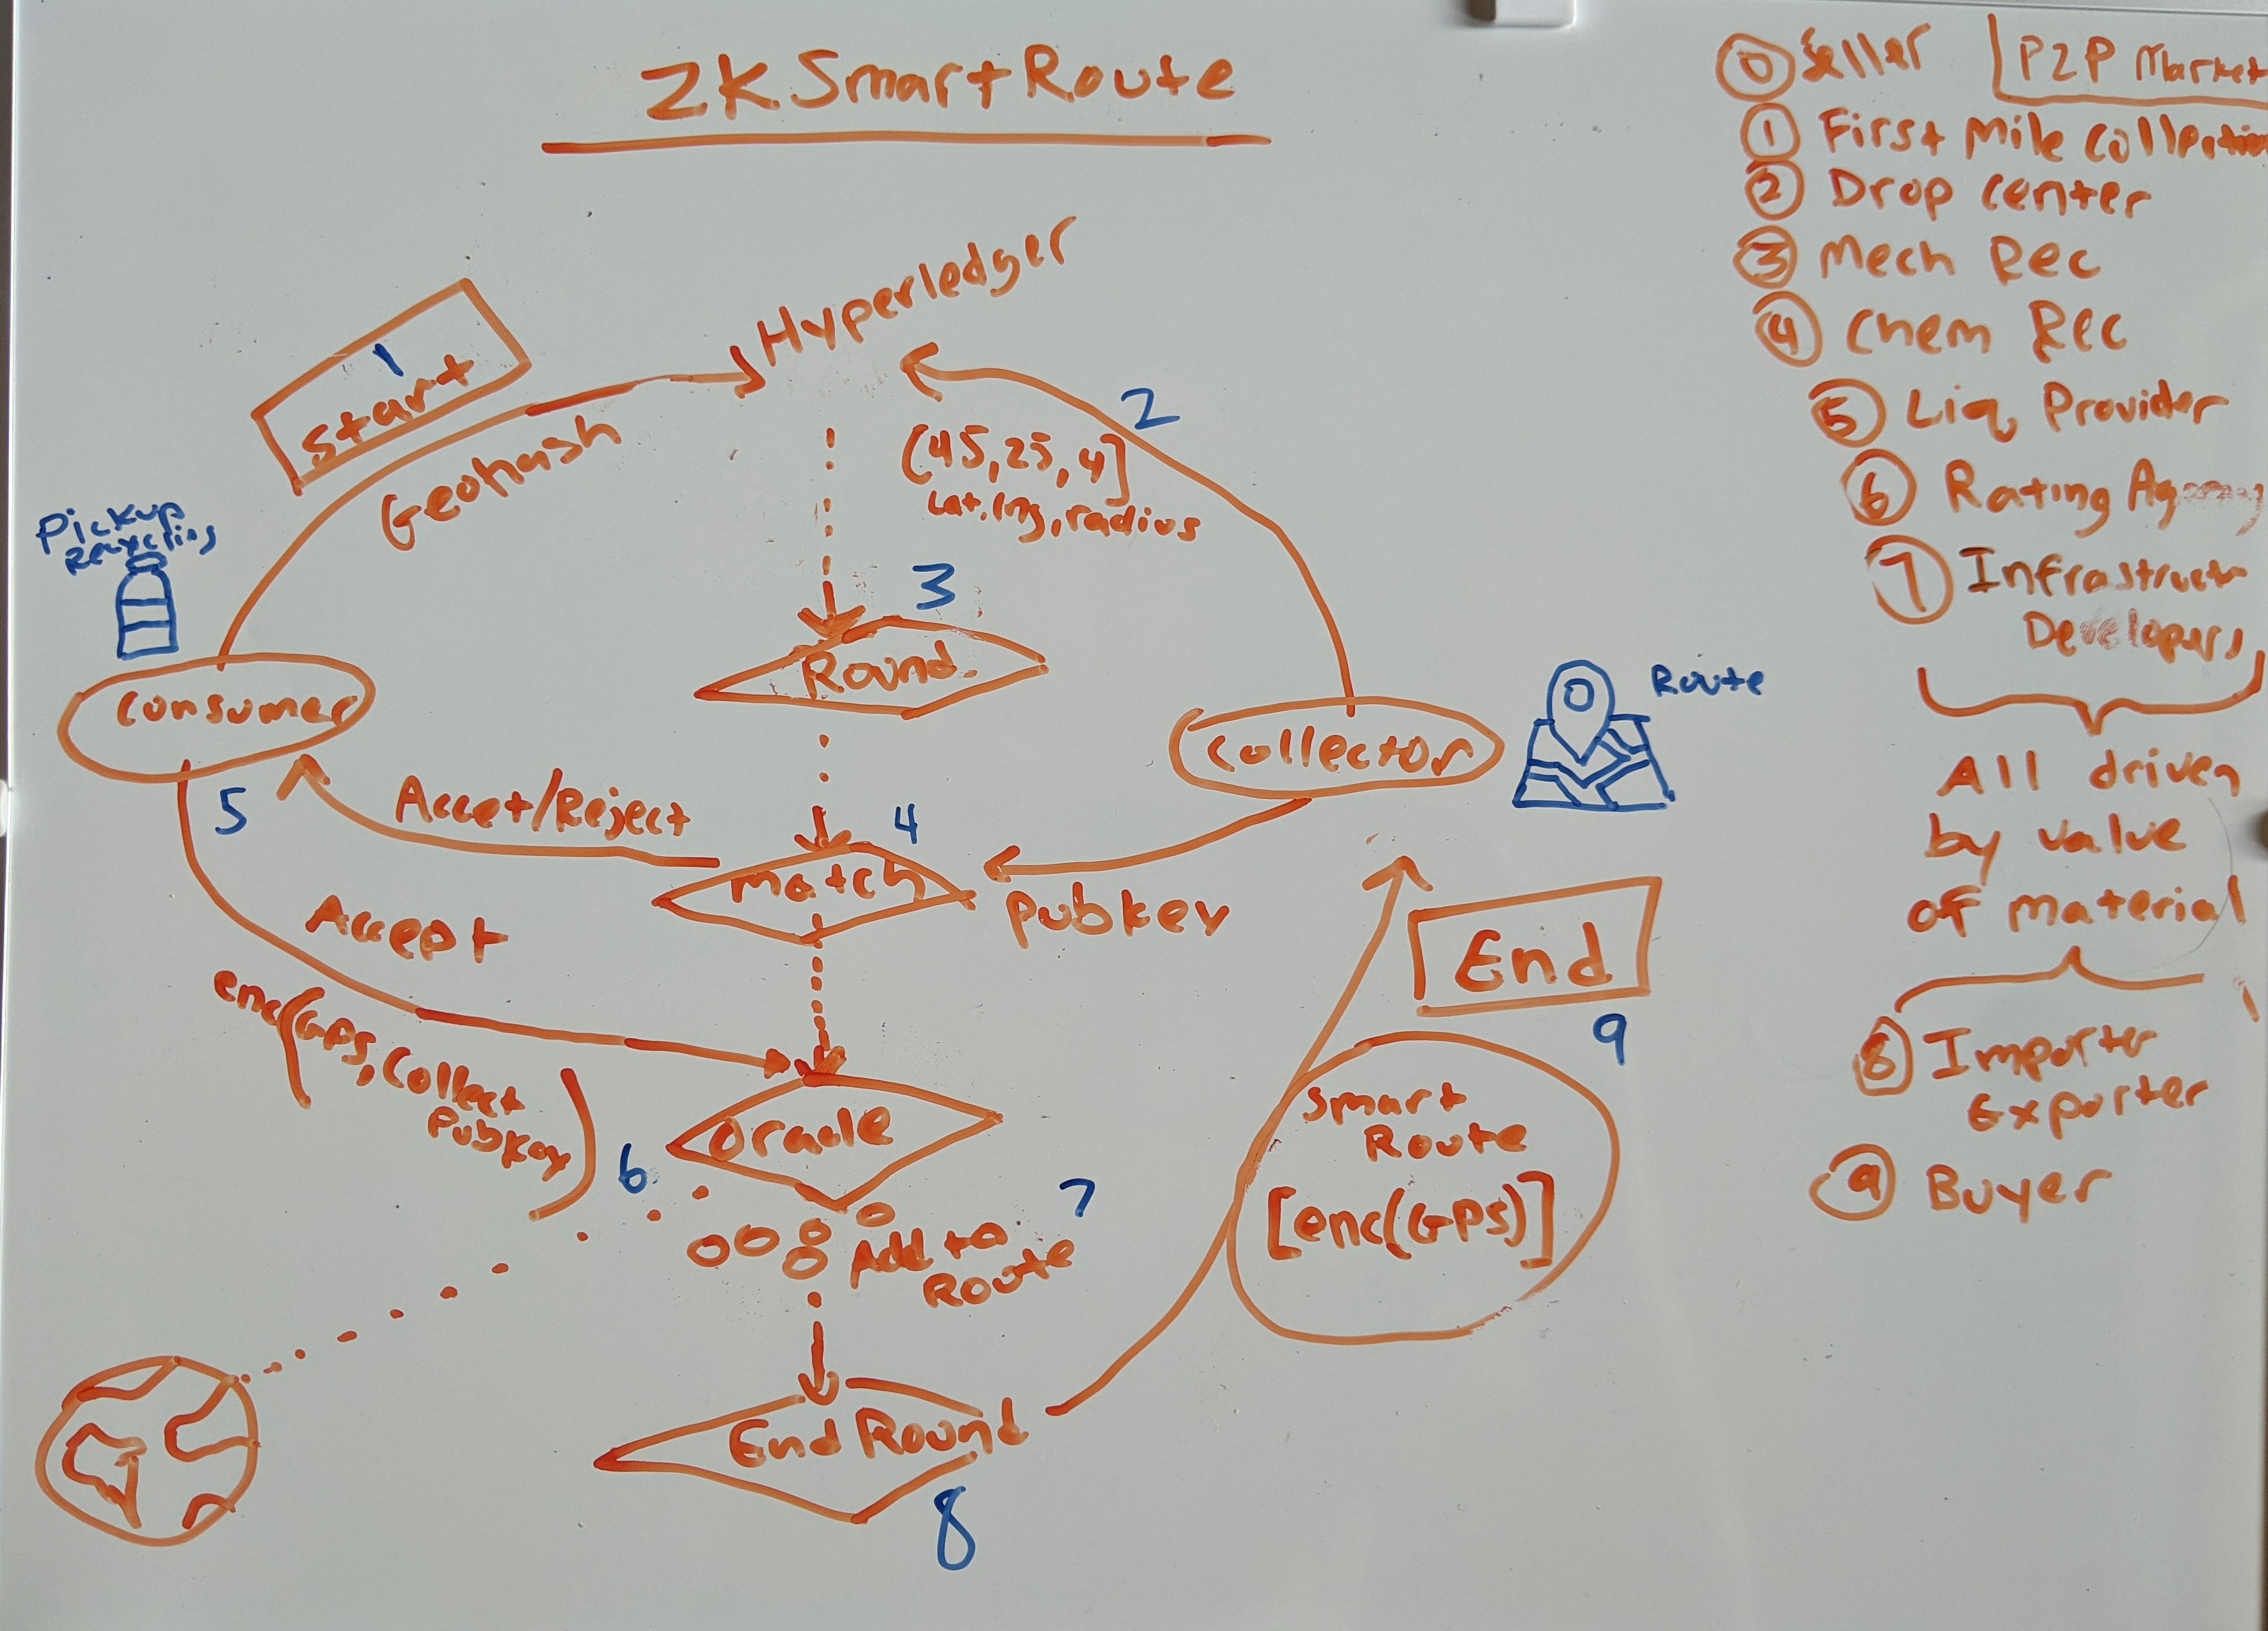 ZK Smart Route
Hyperledger
1
Start
Geohash
2
(45,25,4]
Lat, lng, radius
Pickup
Recycling
3
Round
Consumer
Collector
Route
5
Accet/Reject
4
Match
Pubkey
Accept
enc(GPS, Collect
PubKey)
End
9
Oracle
6
7
Add to
Route
Smart
Route
[enc(GPS)]
End Round
8
0 Seller
P2P Market
1 First Mile Collection
2 Drop center
3 Mech Rec
4 Chem Rec
5 Liq Provider
6 Rating Agency
7 Infrastructr
Developers
All driven
by value
of material
8 Importer
Exporter
9 Buyer